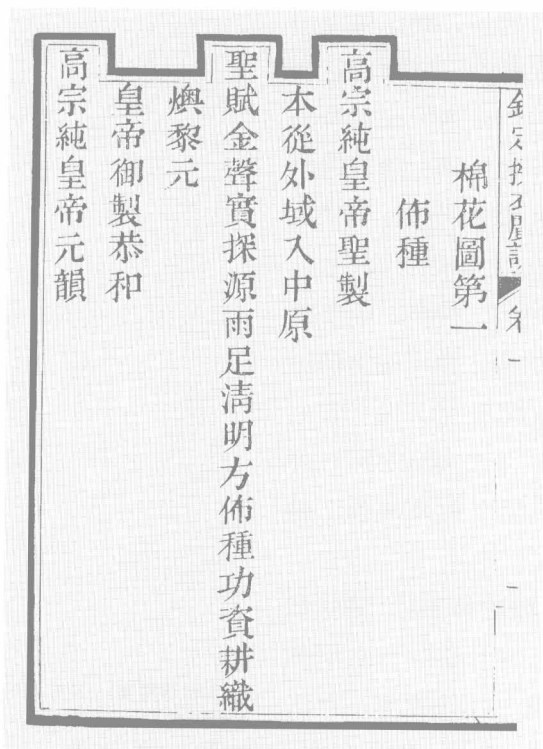 欽定授衣廣訓 卷一
棉花圖第一
佈種
高宗純皇帝聖製
本從外域入中原
聖賦金聲實探源雨足清明方佈種功資耕織
燠黎元
皇帝御製恭和
高宗純皇帝元韻